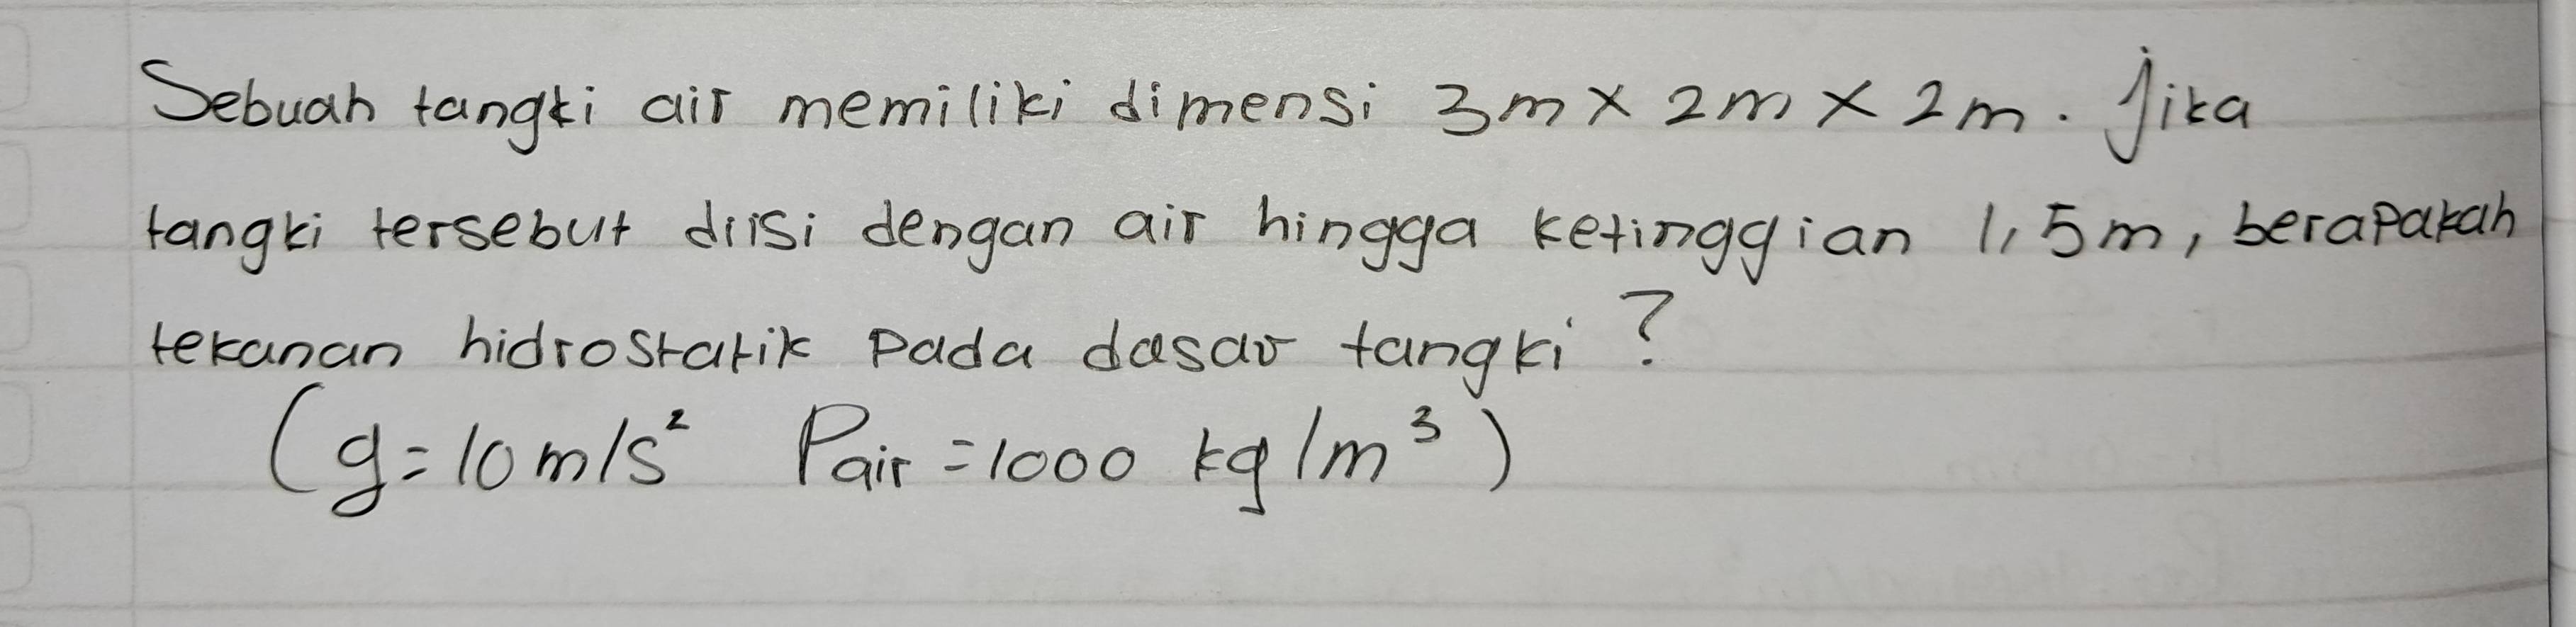 Sebuah tangki air memiliki dimensi 3m x 2m x 2m. Jika
tangki tersebut diisi dengan air hingga ketinggian 1,5m, berapakah
tekanan hidrostatik pada dasar tangki?
(g=10 m/s² Pair =1000 kg/m³)